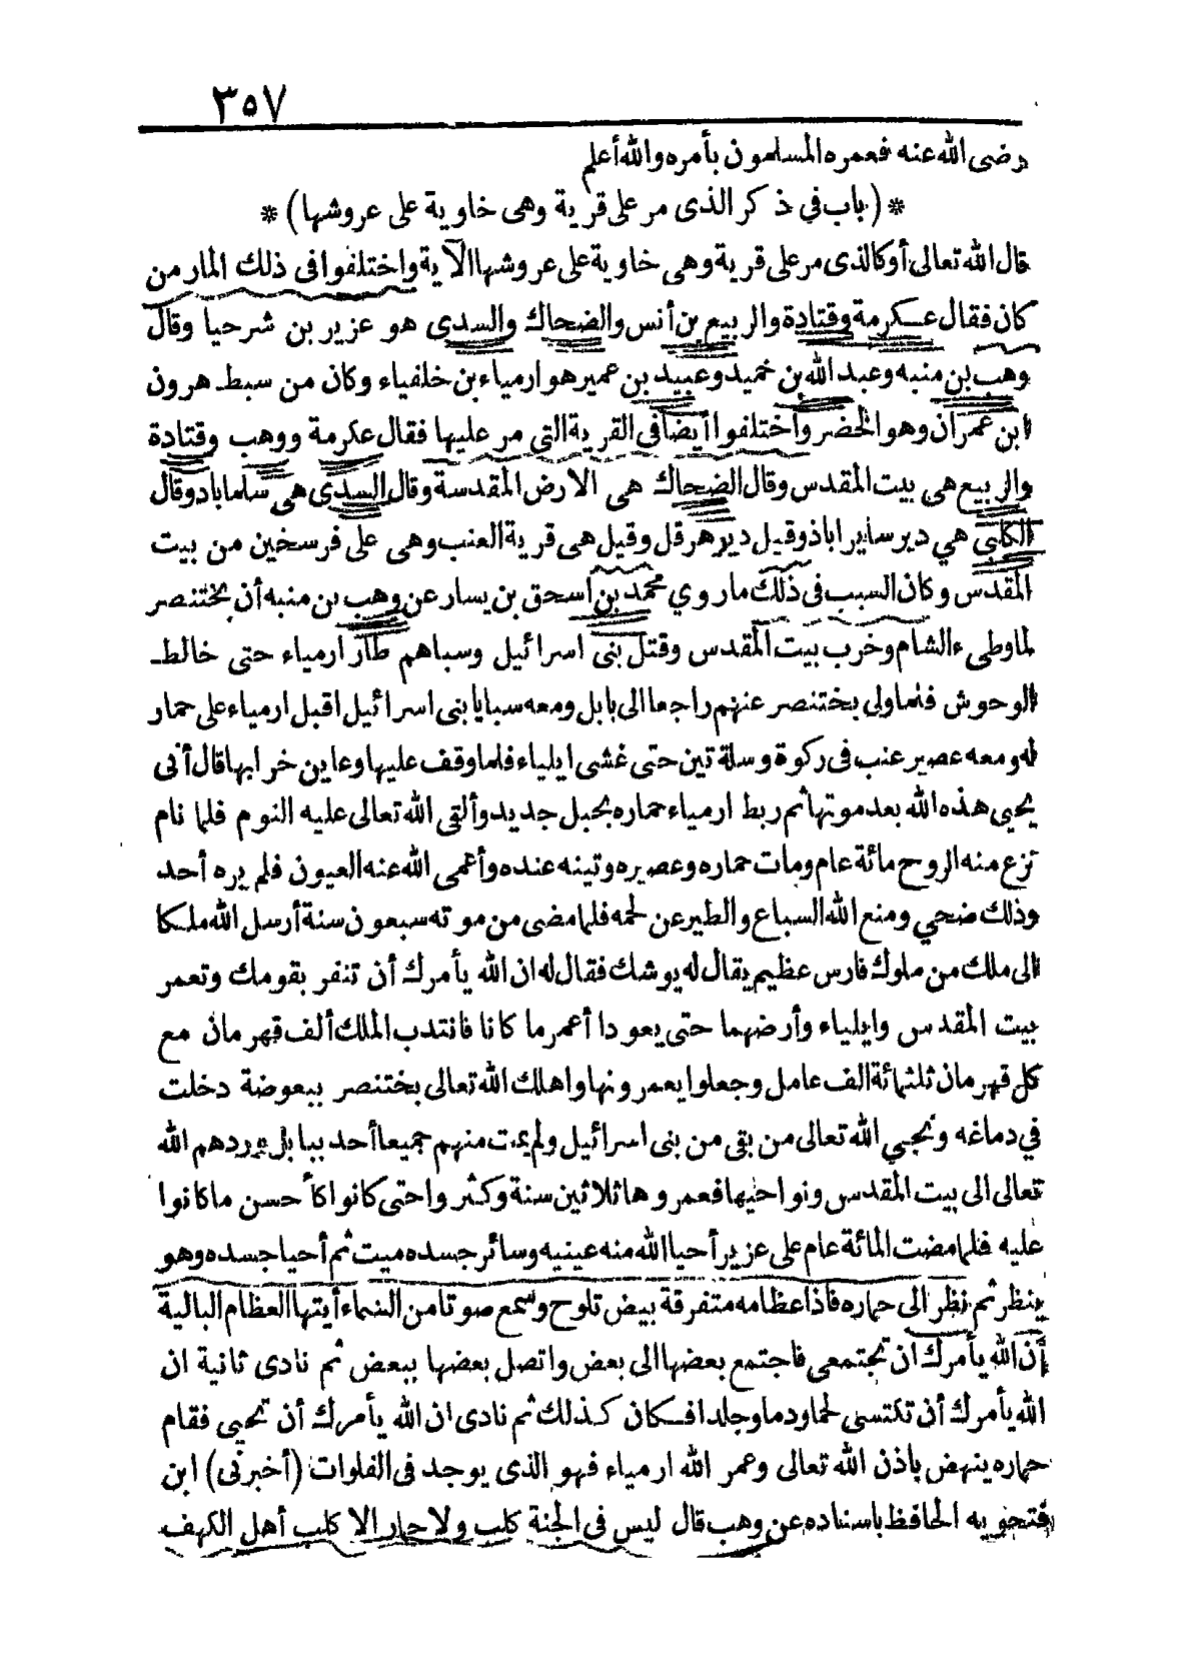 ٣٥٧
رضى الله عنه فعمره المسلمون بأمره والله أعلم
* (باب في ذكر الذى مر على قرية وهى خاوية على عروشها) *
قال الله تعالى أو كالذى مر على قرية وهى خاوية على عروشها الآية واختلفوا فى ذلك المار من
كان فقال عكرمة وقتادة والربيع بن أنس والضحاك والسدى هو عزير بن شرحيا وقال
وهب بن منبه وعبد الله بن حميد وعبيد بن عمير هو ارمياء بن خلفياء وكان من سبط هرون
ابن عمران وهو الخضر واختلفوا أيضا فى القرية التى مر عليها فقال عكرمة ووهب وقتادة
والربيع هى بيت المقدس وقال الضحاك هى الارض المقدسة وقال السدى هى سلماباد وقال
الكلبى هي دير سايراباذ وقيل دير هرقل وقيل هى قرية العنب وهى على فرسخين من بيت
المقدس وكان السبب فى ذلك ما روي محمد بن اسحق بن يسار عن وهب بن منبه أن بختنصر
لما وطىء الشام وخرب بيت المقدس وقتل بنى اسرائيل وسباهم طار ارمياء حتى خالط
الوحوش فلما ولى بختنصر عنهم راجعا الى بابل ومعه سبايا بنى اسرائيل اقبل ارمياء على حمار
له ومعه عصير عنب فى ركوة وسلة تين حتى غشى ايلياء فلما وقف عليها وعاين خرابها قال أنى
يحيى هذه الله بعد موتها ثم ربط ارمياء حماره بحبل جديد وألقى الله تعالى عليه النوم فلما نام
نزع منه الروح مائة عام ومات حماره وعصيره وتينه عنده وأعمى الله عنه العيون فلم يره أحد
وذلك ضحي ومنع الله السباع والطير عن لحمه فلما مضى من موته سبعون سنة أرسل الله ملكا
الى ملك من ملوك فارس عظيم يقال له يوشك فقال له ان الله يأمرك أن تنفر بقومك وتعمر
بيت المقدس وايلياء وأرضهما حتى يعودا أعمر ما كانا فانتدب الملك ألف قهرمان مع
كل قهرمان ثلثمائة الف عامل وجعلوا يعمرونها واهلك الله تعالى بختنصر ببعوضة دخلت
في دماغه ونجي الله تعالى من بقى من بنى اسرائيل ولم يمت منهم جميعا أحد ببابل وردهم الله
تعالى الى بيت المقدس ونواحيها فعمروها ثلاثين سنة وكثروا حتى كانوا كأحسن ما كانوا
عليه فلما مضت المائة عام على عزير أحيا الله منه عينيه وسائر جسده ميت ثم أحيا جسده وهو
ينظر ثم نظر الى حماره فاذا عظامه متفرقة بيض تلوح وسمع صوتا من السماء أيتها العظام البالية
أن الله يأمرك ان تجتمعى فاجتمع بعضها الى بعض واتصل بعضها ببعض ثم نادى ثانية ان
الله يأمرك أن تكتسى لحما ودما وجلدا فكان كذلك ثم نادى ان الله يأمرك أن تحيى فقام
حماره ينهض باذن الله تعالى وعمر الله ارمياء فهو الذى يوجد فى الفلوات (أخبرنى) ابن
فتحويه الحافظ باسناده عن وهب قال ليس فى الجنة كلب ولا حمار الا كلب أهل الكهف